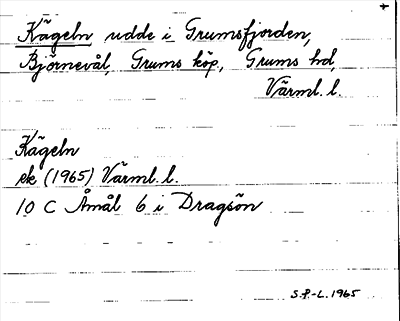 +
Kägeln udde i Grumsfjorden,
Björnevål, Grums köp, Grums hd,
Värml. l.
Kägeln
ek (1965) Värml. l.
10 C Åmål 6 i Dragsön
S.F.-L. 1965